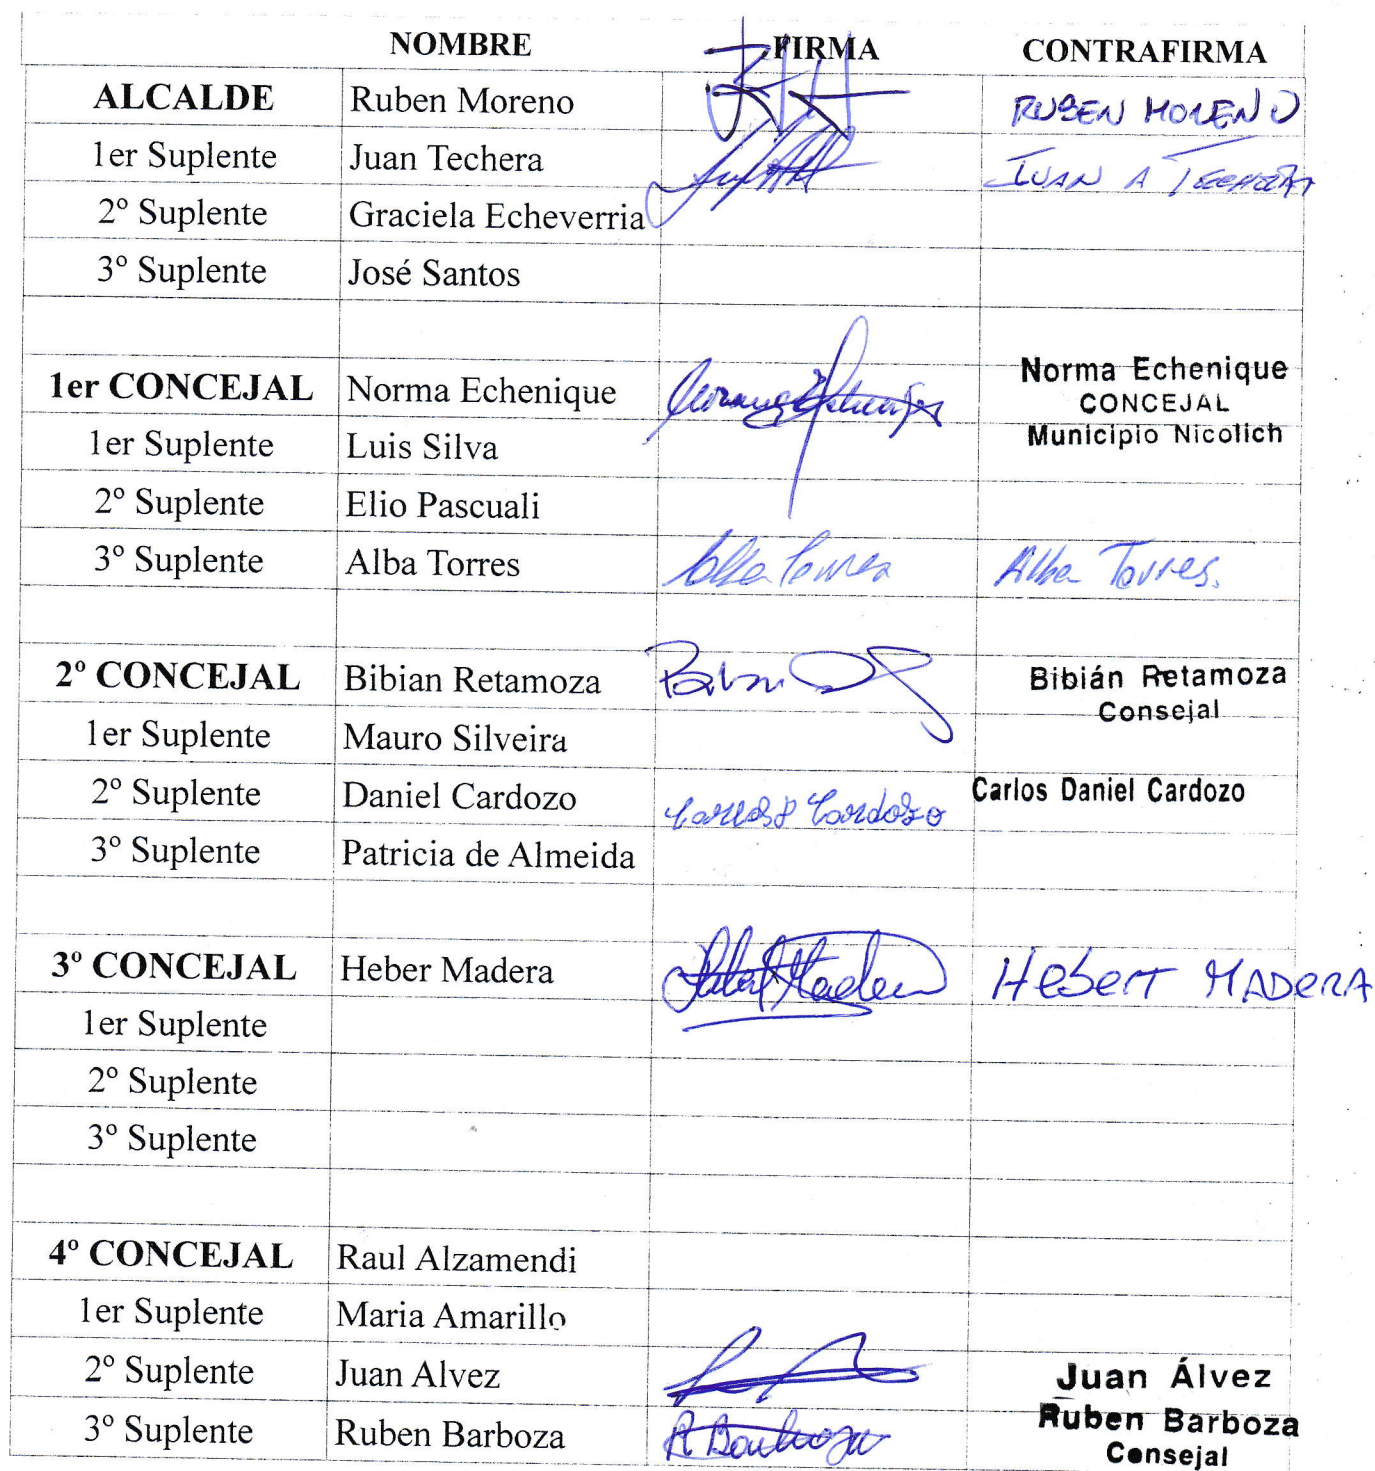 NOMBRE FIRMA CONTRAFIRMA
ALCALDE Ruben Moreno RUBEN MORENO
1er Suplente Juan Techera JUAN A TECHERA
2º Suplente Graciela Echeverria
3º Suplente José Santos
1er CONCEJAL Norma Echenique Norma Echenique
CONCEJAL
1er Suplente Luis Silva Municipio Nicolich
2º Suplente Elio Pascuali
3º Suplente Alba Torres Alba Torres Alba Torres.
2º CONCEJAL Bibian Retamoza Bibián Retamoza
Consejal
1er Suplente Mauro Silveira
2º Suplente Daniel Cardozo Carlos Daniel Cardozo
3º Suplente Patricia de Almeida
3º CONCEJAL Heber Madera Hebert Madera HEBERT MADERA
1er Suplente
2º Suplente
3º Suplente
4º CONCEJAL Raul Alzamendi
1er Suplente Maria Amarillo
2º Suplente Juan Alvez Juan Álvez
3º Suplente Ruben Barboza R Barboza Ruben Barboza
Consejal